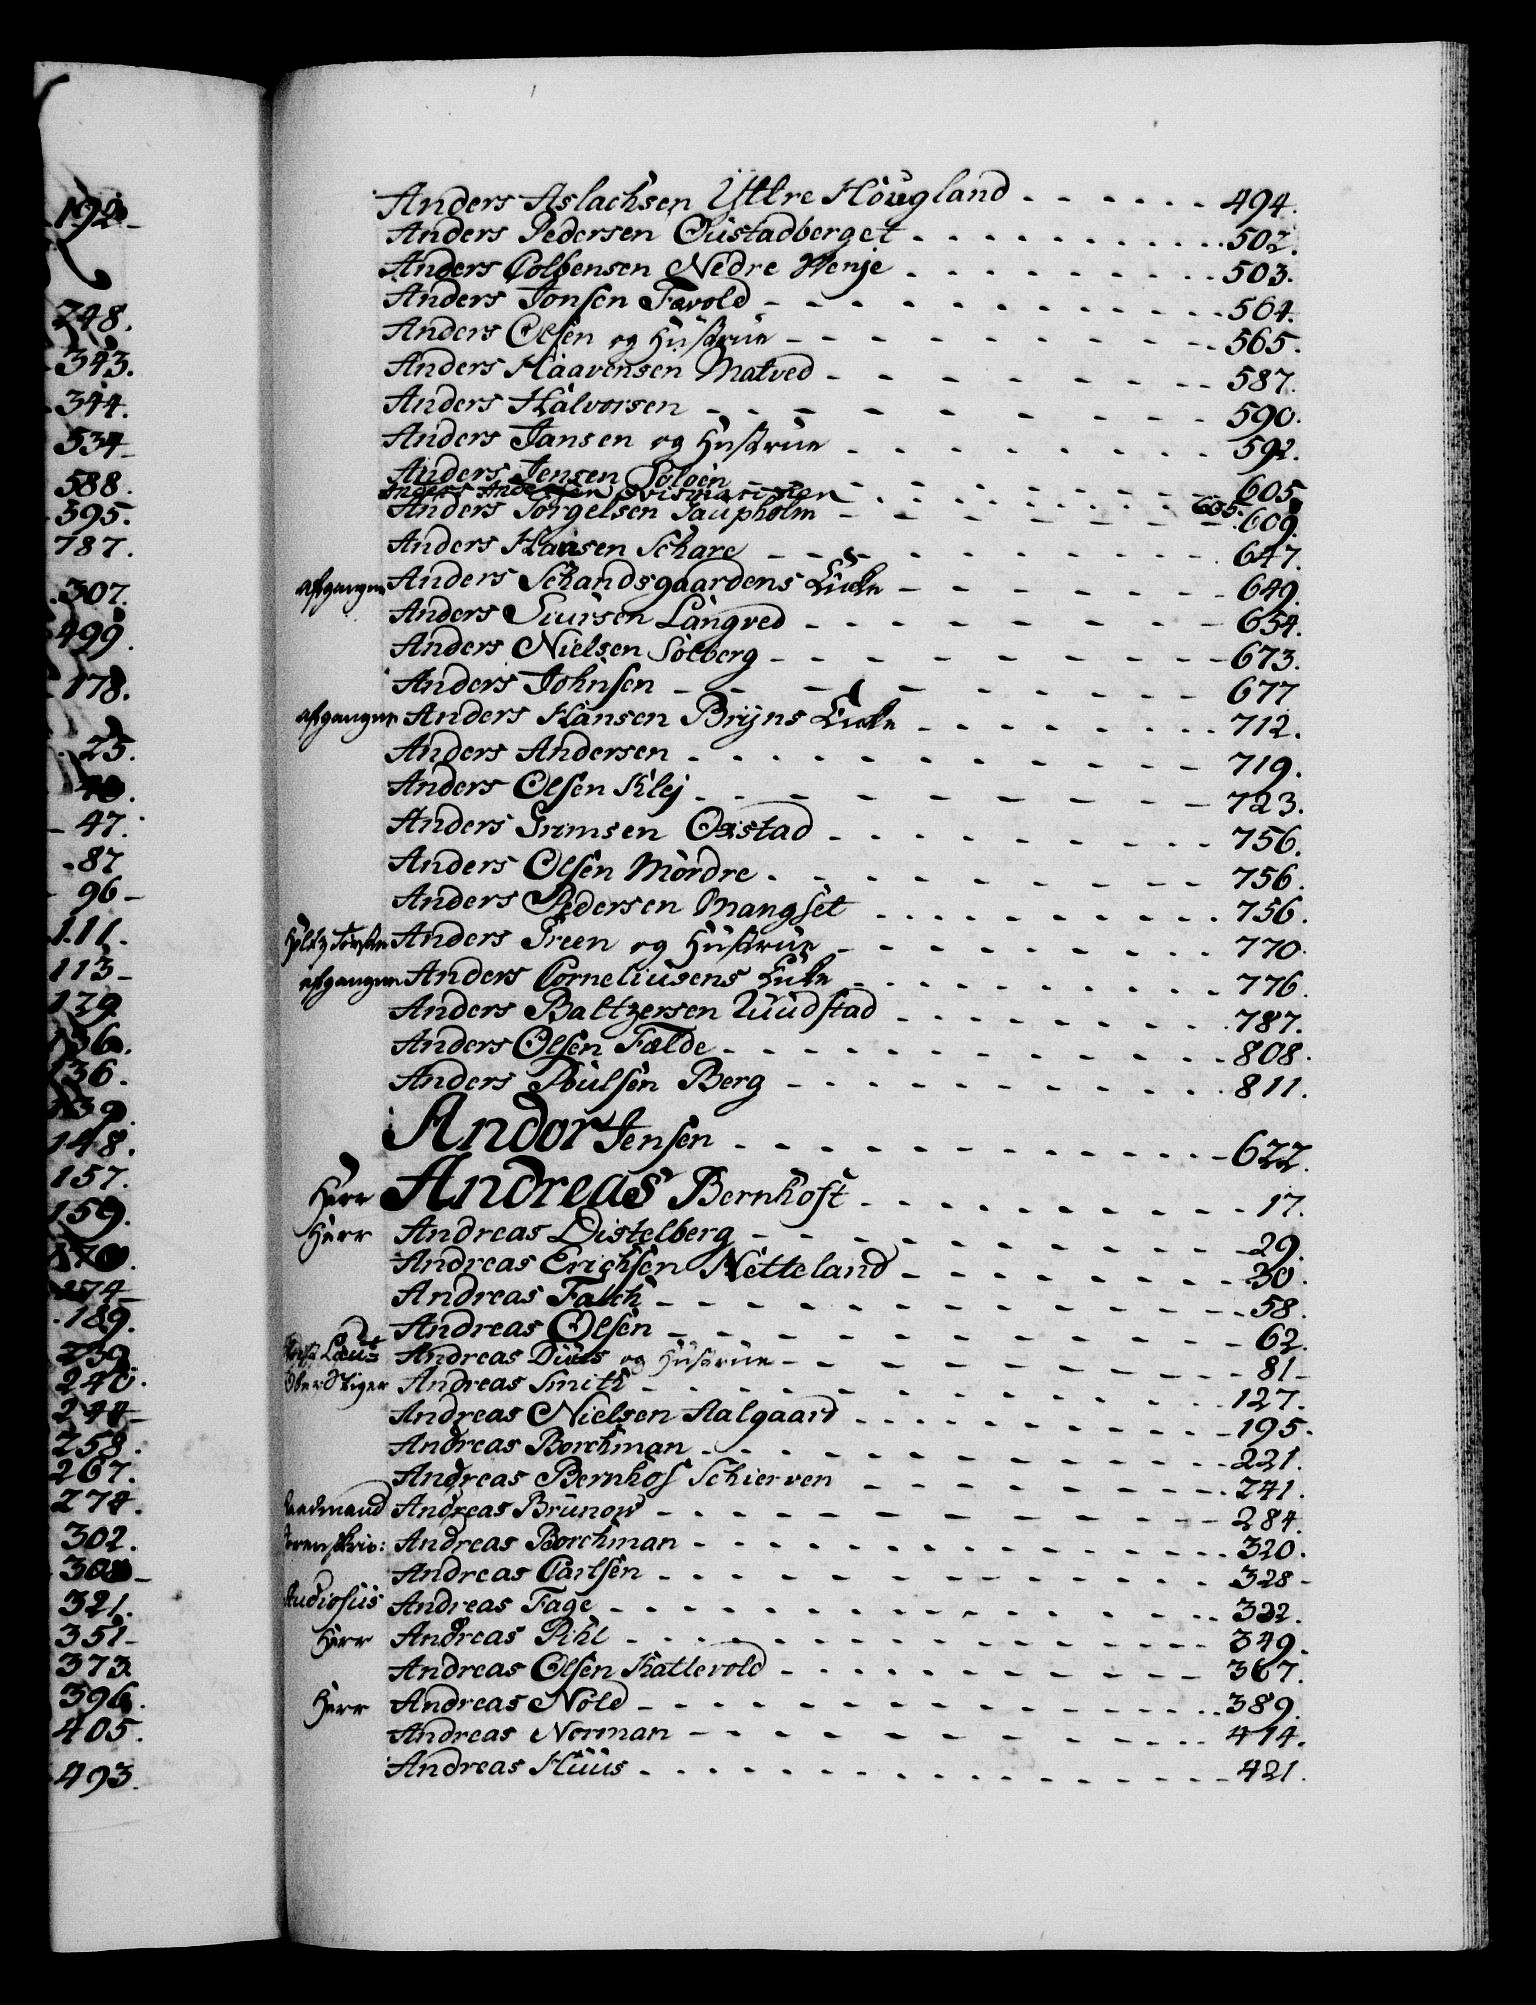 192
248.
343.
344.
534
588.
395.
787.
307.
499.
178.
25.
40.
47.
87
96
111.
113
129
136.
136.
139.
148.
157.
159.
170.
174
189.
239.
240.
244
258.
267.
274.
302.
308
321.
351
373
396.
405.
493.
Anders Aslachsen Yttre Höugland 494.
Anders Pedersen Gustadberget 502.
Anders Colbensen Nedre Wenje 503.
Anders Jonsen Favold 564.
Anders Olsen og Hustrue 565.
Anders Haavensen Matved 587.
Anders Halvorsen 590.
Anders Jansen og Hustrue 592.
Anders Jensen Soloen 605
Anders Andersen 605.
Anders Torgelsen Taupholm 609.
Anders Hansen Schare 647.
afgangne Anders Schandsgaardens Encke 649.
Anders Siursen Langved 654.
Anders Nielsen Solberg 673.
Anders Johnsen 677
afgangne Anders Hansen Bryns Encke 712.
Anders Andersen 719.
Anders Olsen Klej 723.
Anders Grimsen Oxstad 756.
Anders Olsen Mördre 756.
Anders Pedersen Mangset 756.
Anders Green og Hustrue 770.
afgangne Anders Corneliusens Encke 776.
Anders Baltzersen Ruudstad 787.
Anders Olsen Fælde 808.
Anders Poulsen Berg 811.
Andor Jensen 622.
Herr Andreas Bernhoft 17.
Herr Andreas Distelberg 29.
Andreas Erichsen Netteland 30.
Andreas Falch 58.
Andreas Olsen 62.
Andreas Duus og Hustrue 81
Oberstiger Andreas Smith 127.
Andreas Nielsen Aalgaard 195.
Andreas Borchman 221.
Andreas Bernhof Schierven 241.
Raadmand Andreas Brunow 284.
Sorenskriv: Andreas Borchman 320.
Andreas Carlsen 328
Studiosus Andreas Fage 332.
Herr Andreas Pihl 349.
Andreas Olsen Kattevold 367.
Herr Andreas Nold 389.
Andreas Norman 414.
Andreas Huus 421.